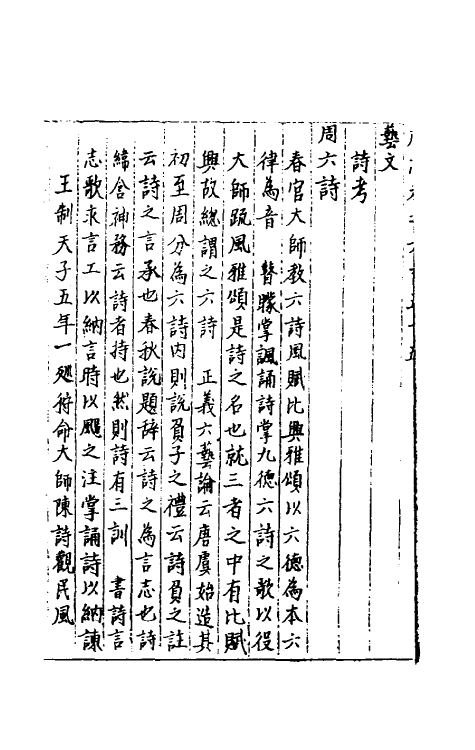 藝文
詩考
周六詩
春官大師教六詩風賦比興雅頌以六德為本六
律為音 瞽矇掌諷誦詩掌九德六詩之歌以役
大師䟽風雅頌是詩之名也就三者之中有比賦
興故總謂之六詩 正義六藝論云唐虞始造其
初至周分為六詩内則說負子之禮云詩負之註
云詩之言承也春秋說題辞云詩之為言志也詩
緯含神務云詩者持也然則詩有三訓 書詩言
志歌永言工以納言時以颺之注掌誦詩以納諫
王制天子五年一廵狩命大師陳詩觀民風